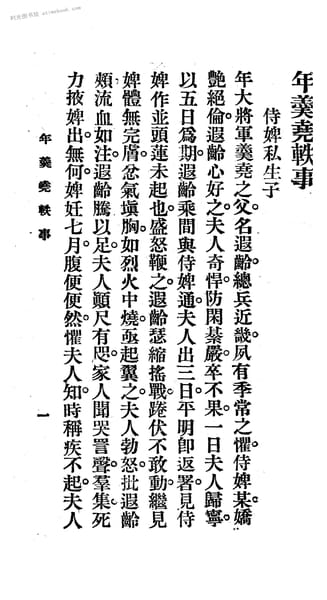 时光图书馆 etimebook.com
年羹堯軼事
侍婢私生子
年大將軍羹堯之父名遐齡總兵近畿夙有季常之懼侍婢某嬌
艷絕倫遐齡心好之夫人奇悍防閑綦嚴卒不果一日夫人歸寧。
以五日爲期遐齡乘間與侍婢通夫人出三日平明卽返署見侍
婢作並頭蓮未起也盛怒鞭之遐齡瑟縮搖戰踡伏不敢動繼見
婢體無完膚忿氣塡胸如烈火中燒亟起翼之夫人勃怒批遐齡
頰流血如注遐齡騰以足夫人顚尺有咫家人聞哭詈聲羣集死
力掖婢出無何婢妊七月腹便便然懼夫人知時稱疾不起夫人
年羹堯軼事
一